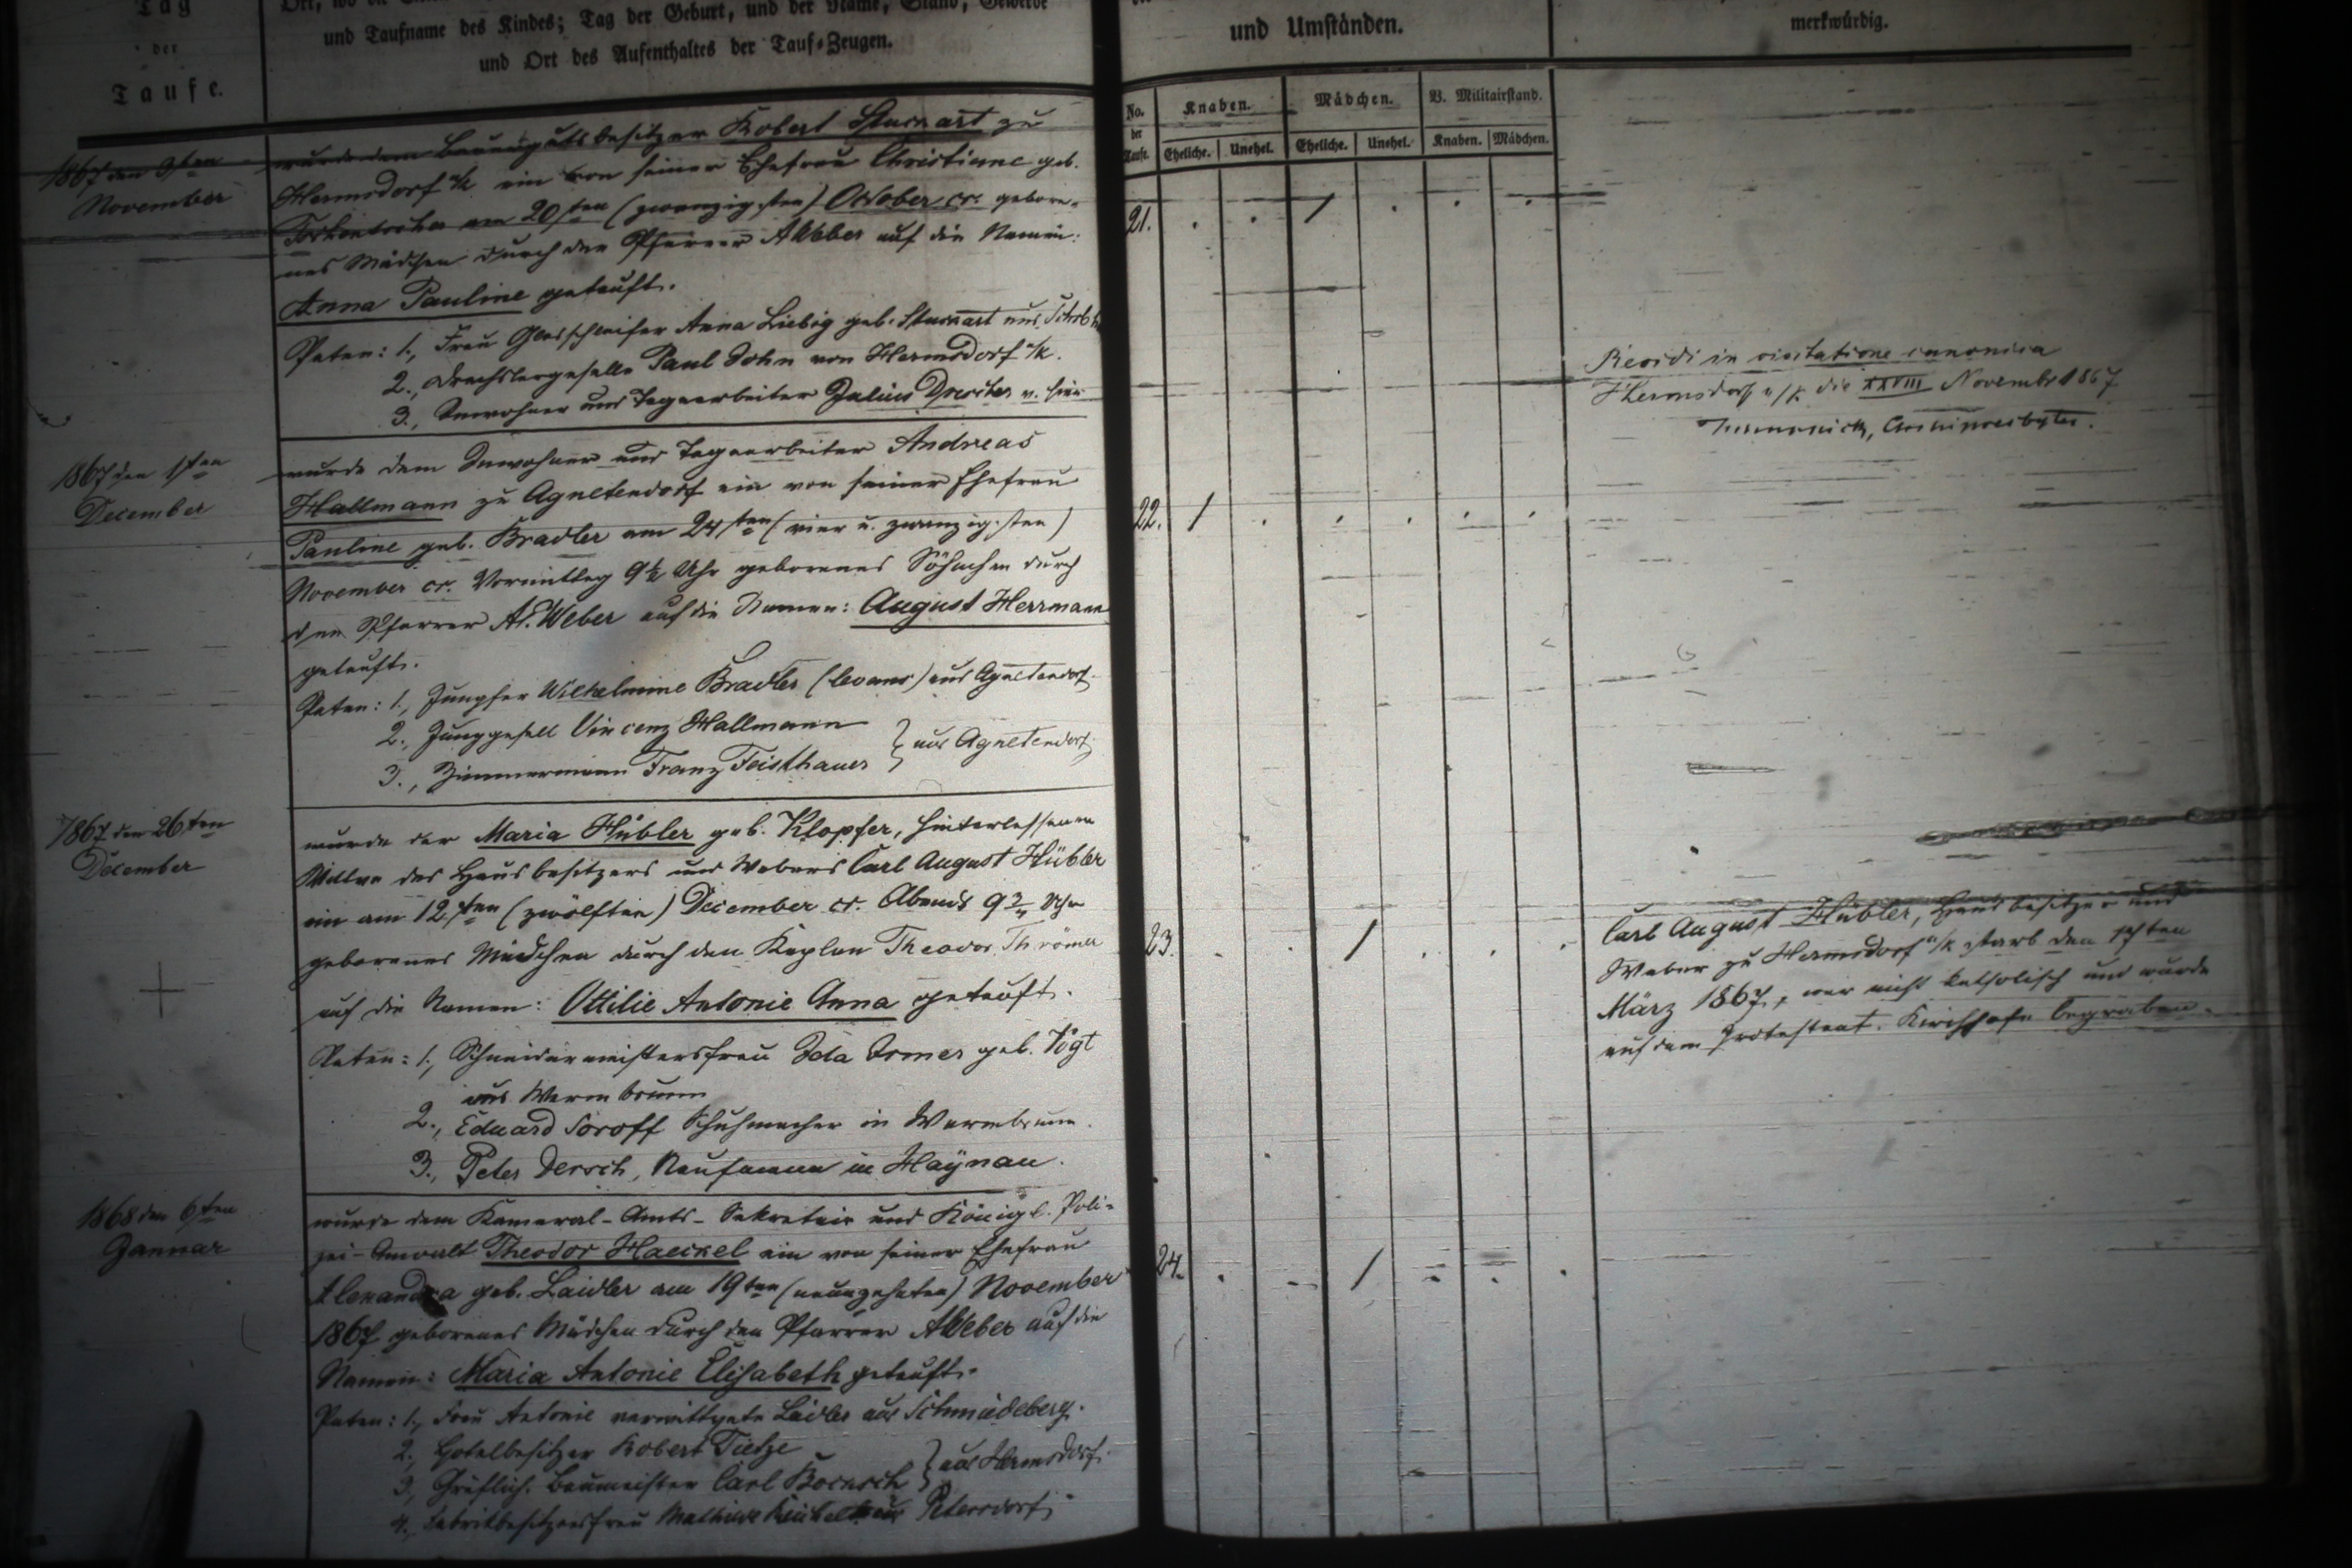 Tag
der
Taufe.
und Taufname des Kindes; Tag der Geburt, und der Name, Stand, Gewerbe
und Ort des Aufenthaltes der Tauf-Zeugen.
1867 den 9ten
November
wurde dem Bauergutsbesitzer Robert Stuckart zu
Hermsdorf u/k ein von seiner Ehefrau Christiane geb.
am 20sten (zwanzigsten) October cr. gebore-
nes Mädchen durch den Pfarrer AWeber auf die Namen:
Anna Pauline getauft.
Paten: 1., Frau Glasschleifer Anna Liebig geb. Stuckart aus
2., Drechslergeselle Paul John von Hermsdorf u/k.
3., Inwohner und Tagearbeiter Julius v. hier
1867 den 1sten
December
wurde dem Inwohner und Tagearbeiter Andreas
Hallmann zu Agnetendorf ein von seiner Ehefrau
Pauline geb. Bradler am 24sten (vier u. zwanzigsten)
November cr. Vormittag 9½ Uhr geborenes Söhnchen durch
den Pfarrer A. Weber auf die Namen: August Herrmann
getauft.
Paten: 1., Jungfer Wilhelmine Bradler (evang) aus Agnetendorf.
2., Junggesell Vincenz Hallmann
3., Zimmermann Franz Feisthauer } aus Agnetendorf
1867 den 26ten
December
wurde der Maria Hübler geb. Klopfer, hinterlassenen
Wittwe des Hausbesitzers und Webers Carl August Hübler
ein am 12ten (zwölften) December cr. Abends 9¾ Uhr
geborenes Mädchen durch den Kaplan Theodor Thrömer
auf die Namen: Ottilie Antonie Anna getauft.
Paten: 1., Schneidermeistersfrau Ida Irmer geb. Vogt
aus Warmbrunn
2., Eduard Soroff Schuhmacher in Warmbrunn.
3., Peter Dersch, Kaufmann in Haynau.
1868 den 6ten
Januar
wurde dem Kameral-Amts-Sekretair und Königl. Poli-
zei-Anwalt Theodor Haeckel ein von seiner Ehefrau
Alexandra geb. Laidler am 19ten (neunzehnten) November
1867 geborenes Mädchen durch den Pfarrer AWeber auf die
Namen: Maria Antonie Elisabeth getauft.
Paten: 1., Frau Antonie verwittwete Laidler aus Schmiedeberg.
2., Hotelbesitzer Robert Tietze
3., Gräflich. Baumeister Carl } aus Hermsdorf.
4., Fabrikbesitzersfrau Mathilde aus Petersdorf
und Umständen.
merkwürdig.
No. der Taufe.
Knaben.
Mädchen.
B. Militairstand.
Eheliche. Unehel. Eheliche. Unehel. Knaben. Mädchen.
21. . . / . . .
22. / . . . . .
23. . . / . . .
24. . . / . . .
Revidi in visitatione canonica
Hermsdorf u/k. die XXVIII Novembr 1867
Archipresbyter.
Carl August Hübler, Hausbesitzer und
Weber zu Hermsdorf u/k starb den
März 1867, war nicht katholisch und wurde
auf dem Protestant. Kirchhofe begraben.